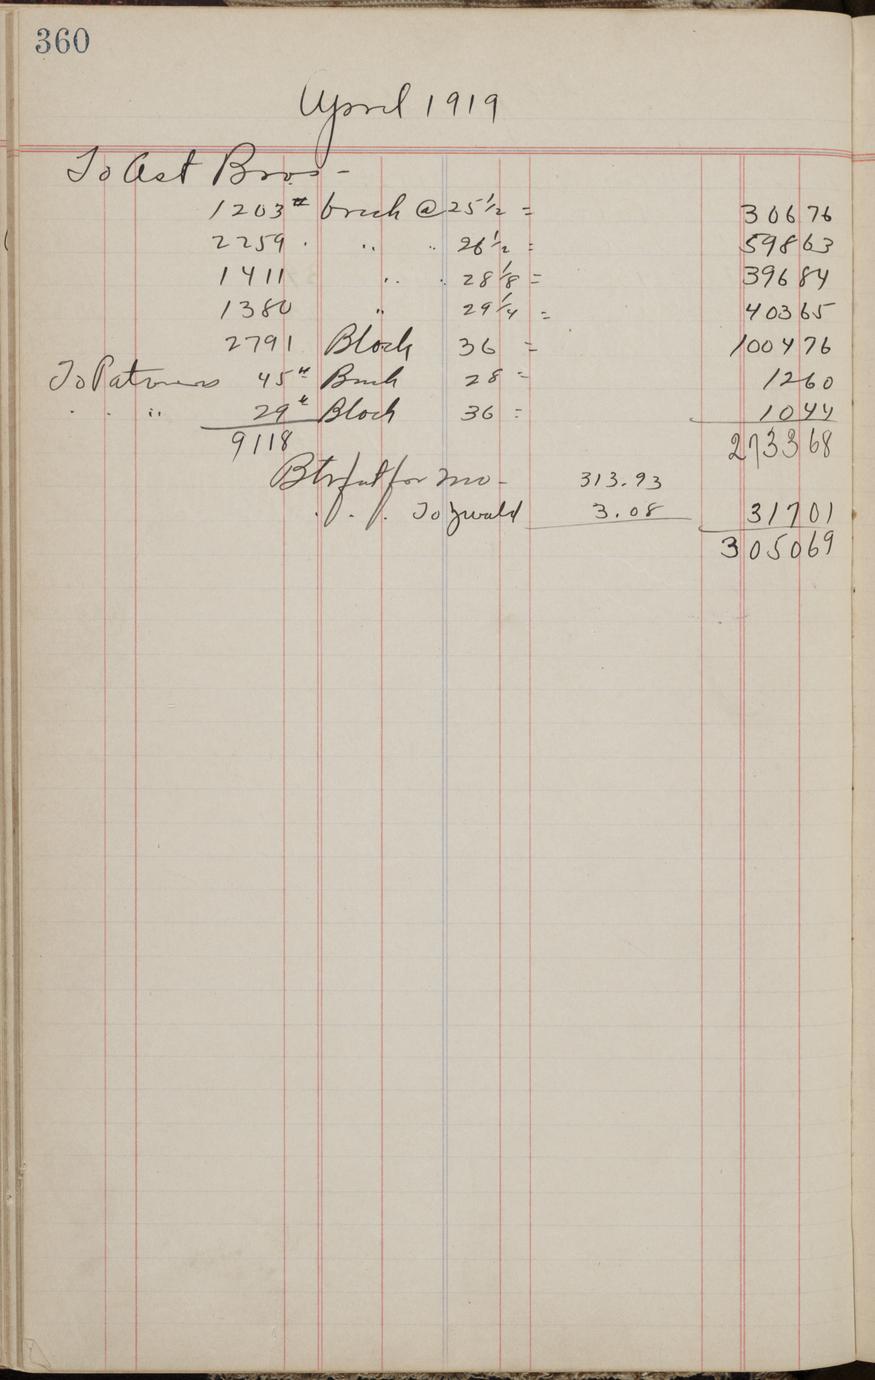 360
April 1919
To Ast Bros -
1203 # brick @ 25 1/2 = 306 76
2259 . .. .. 26 1/2 = 598 63
1411 .. . 28 1/8 = 396 84
1380 .. 29 1/4 = 403 65
2791 Block 36 = 1004 76
To Patrons 45 # Brick 28 = 12 60
. . .. 29 # Block 36 = 10 44
9118 2733 68
Btrfat for mo - 313.93
. . . To Zwald 3.08 317 01
3050 69